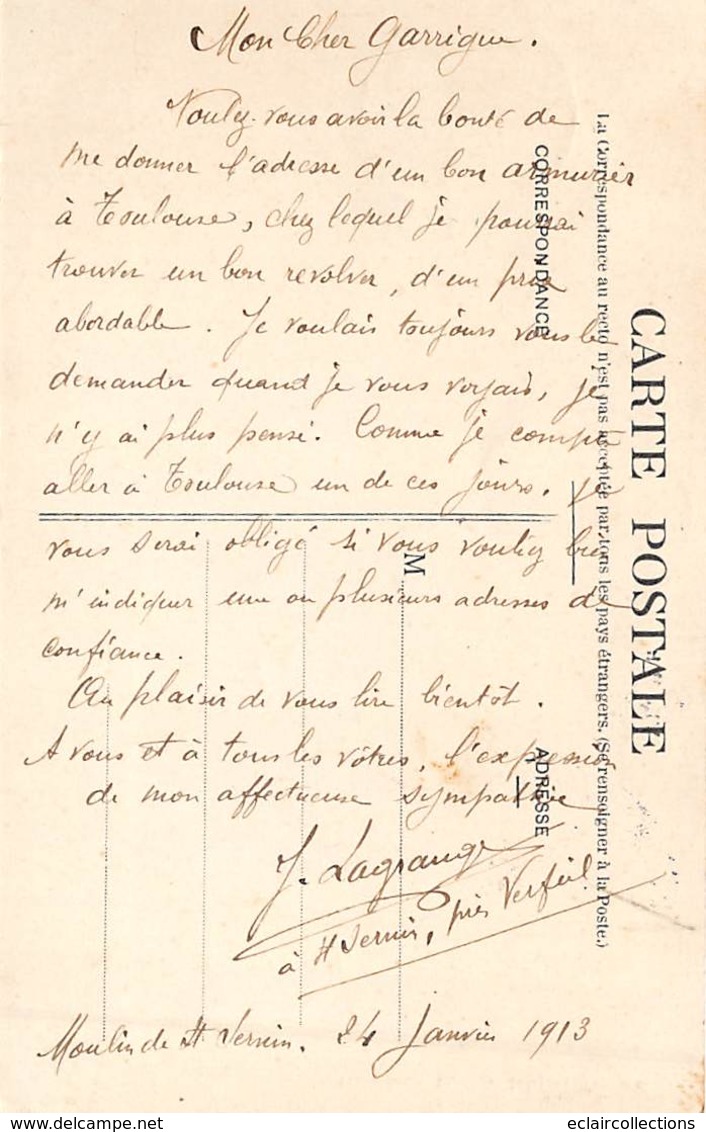 Mon Cher Garrigue.
Voulez-vous avoir la bonté de
me donner l'adresse d'un bon armurier
à Toulouse, chez lequel je pourrai
trouver un bon revolver, d'un prix
abordable. Je voulais toujours vous le
demander quand je vous voyais, je
n'y ai plus pensé. Comme je compte
aller à Toulouse un de ces jours, je
vous serai obligé si vous vouliez bien
m'indiquer une ou plusieurs adresses de
confiance.
Au plaisir de vous lire bientôt.
A vous et à tous les vôtres, l'expression
de mon affectueuse sympathie
J. Lagrange
à St Sernin, près Verfeil
Moulin de St Sernin. 24 Janvier 1913
CARTE POSTALE
La Correspondance au recto n'est pas acceptée par tous les pays étrangers. (Se renseigner à la Poste.)
CORRESPONDANCE
ADRESSE
M
eclaircollections.com